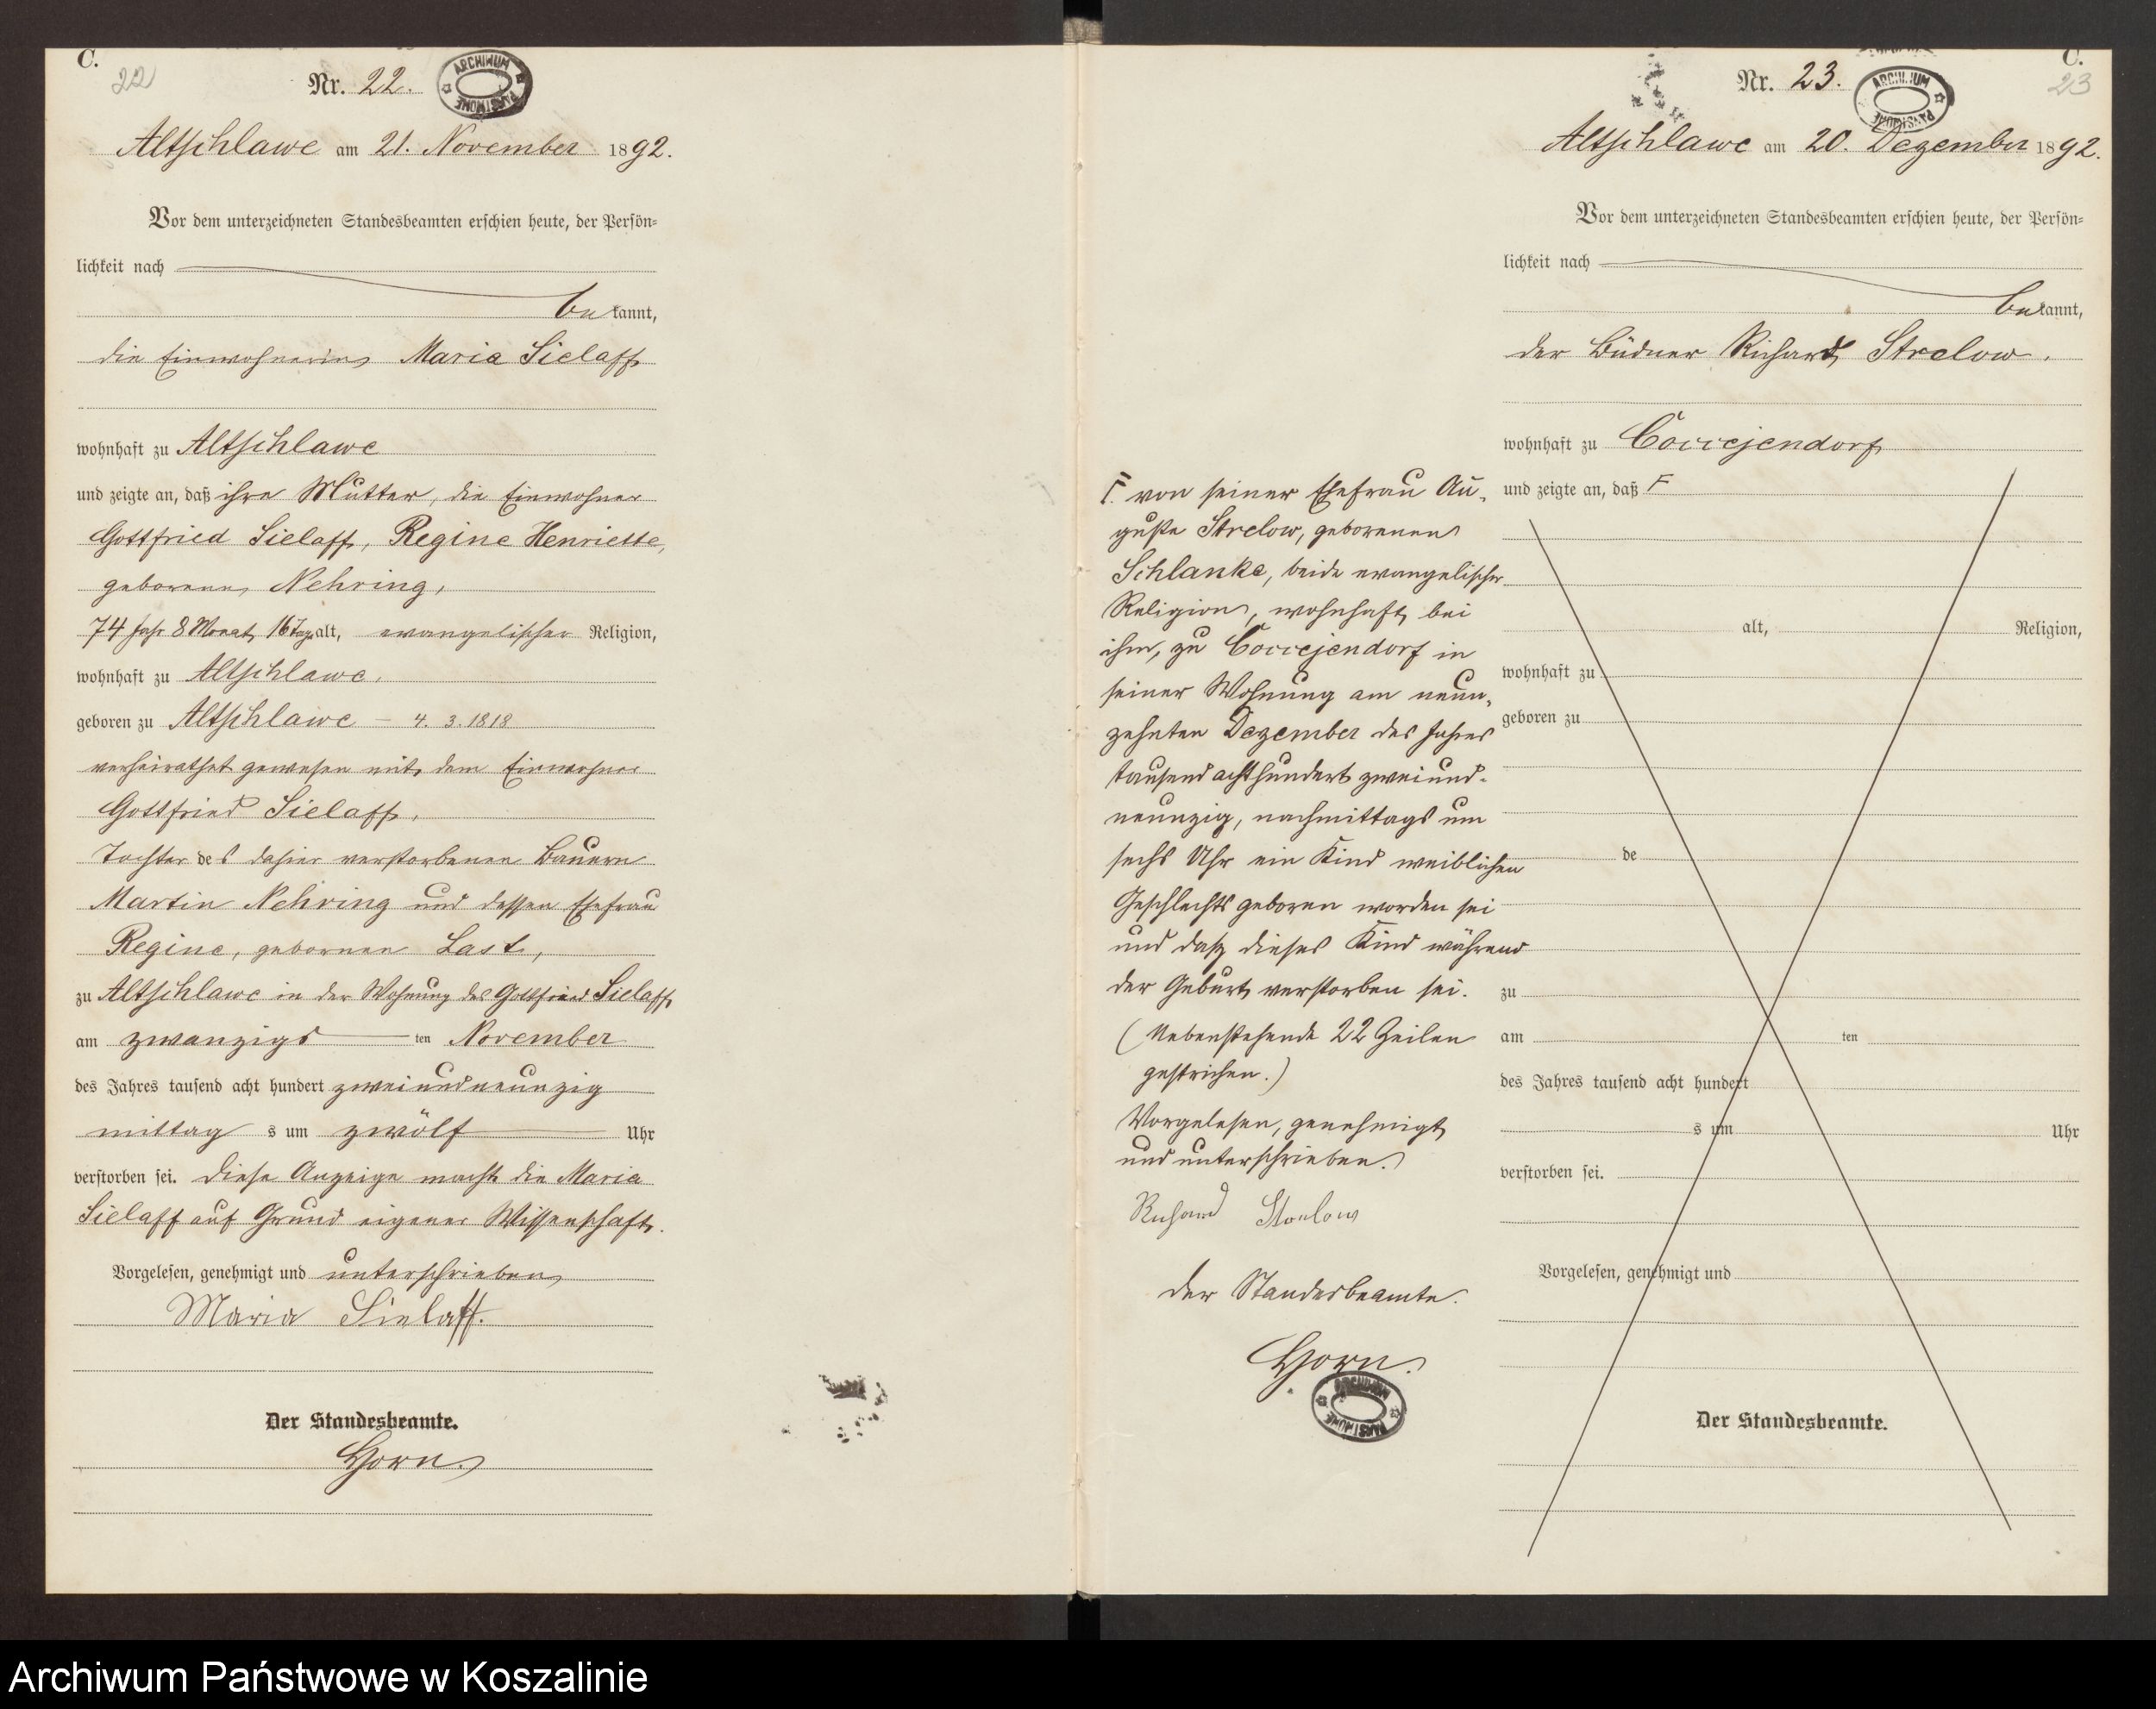 C.
22
Nr. 22.
ARCHIWUM PAŃSTWOWE
Altschlawe am 21. November 1892.
Vor dem unterzeichneten Standesbeamten erschien heute, der Persön-
lichkeit nach
bekannt,
die Einwohnerin Maria Sielaff
wohnhaft zu Altschlawe
und zeigte an, daß ihre Mutter, die Einwohner
Gottfried Sielaff, Regine Henriette,
geborene Nehring,
74 Jahr 8 Monat 16 Tage alt, evangelischer Religion,
wohnhaft zu Altschlawe,
geboren zu Altschlawe – 4. 3. 1818
verheirathet gewesen mit dem Einwohner
Gottfried Sielaff,
Tochter des dahier verstorbenen Bauern
Martin Nehring und dessen Ehefrau
Regine, gebornen Last,
zu Altschlawe in der Wohnung des Gottfried Sielaff,
am zwanzigsten November
des Jahres tausend acht hundert zweiundneunzig
mittags um zwölf Uhr
verstorben sei. Diese Anzeige macht die Maria
Sielaff auf Grund eigener Wissenschaft.
Vorgelesen, genehmigt und unterschrieben
Maria Sielaff.
Der Standesbeamte.
Horn.
C.
23
Nr. 23.
ARCHIWUM PAŃSTWOWE
Altschlawe am 20. Dezember 1892.
Vor dem unterzeichneten Standesbeamten erschien heute, der Persön-
lichkeit nach
bekannt,
der Büdner Richard Strelow.
wohnhaft zu Coccejendorf
und zeigte an, daß F
F. von seiner Ehefrau Au-
guste Strelow, geborenen
Schlanke, beide evangelischer
Religion, wohnhaft bei
ihm, zu Coccejendorf in
seiner Wohnung am neun-
zehnten Dezember des Jahres
tausend achthundert zweiund-
neunzig, nachmittags um
sechs Uhr ein Kind weiblichen
Geschlechts geboren worden sei
und dasz dieses Kind während
der Geburt verstorben sei.
(Nebenstehende 22 Zeilen
gestrichen.)
Vorgelesen, genehmigt
und unterschrieben.
Richard Strelow
Der Standesbeamte.
Horn.
ARCHIWUM PAŃSTWOWE
alt, Religion,
wohnhaft zu
geboren zu
de
zu
am ten
des Jahres tausend acht hundert
s um Uhr
verstorben sei.
Vorgelesen, genehmigt und
Der Standesbeamte.
Archiwum Państwowe w Koszalinie